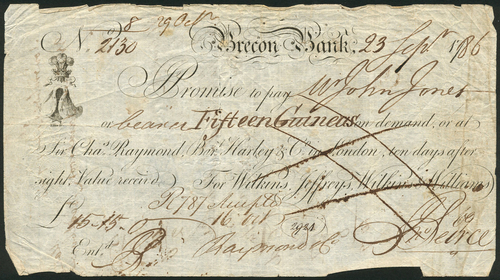 8 29 Octr
No. 2130 Brecon Bank, 23 Sepr. 1786
I Promise to pay Mr John Jones
or bearer Fifteen Guineas on demand, or at
Sir Chas. Raymond, Bt. Harley & Co. London, ten days after
sight, Value receiv'd. For Wilkins, Jeffreys, Wilkins & Williams
£ 15-15-0 Accepted
16 Oct
2924
Ent'd. Raymond & Co